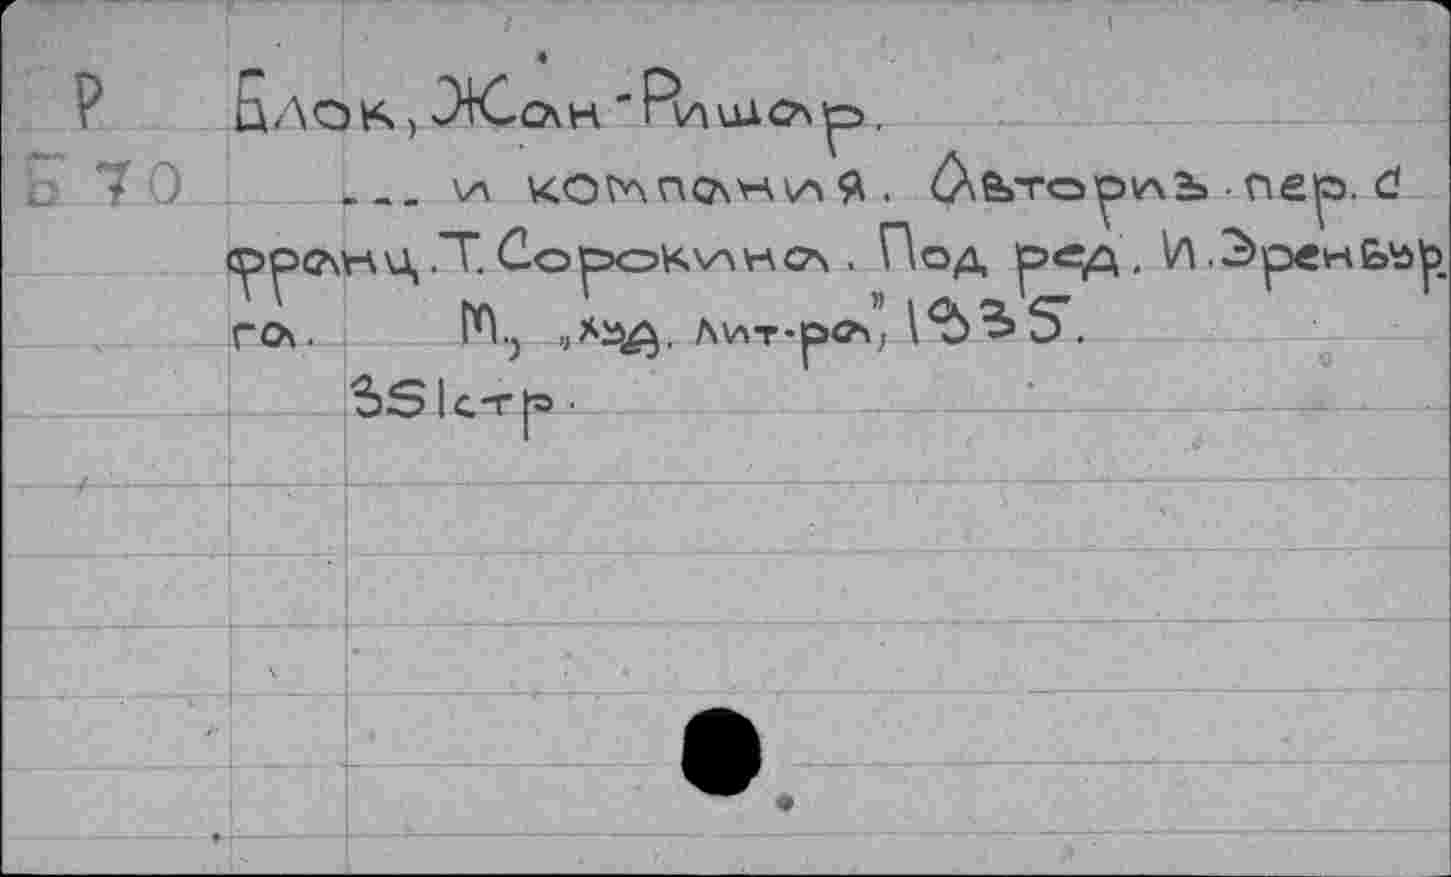 Р Блок, Жан-Ришар.
Б 70 ... и компания. Авториз. пер. с
франц. Т. Сорокина. Под ред. И. Эренбур
га. М., „Худ. лит-ра", 1935.
351стр.